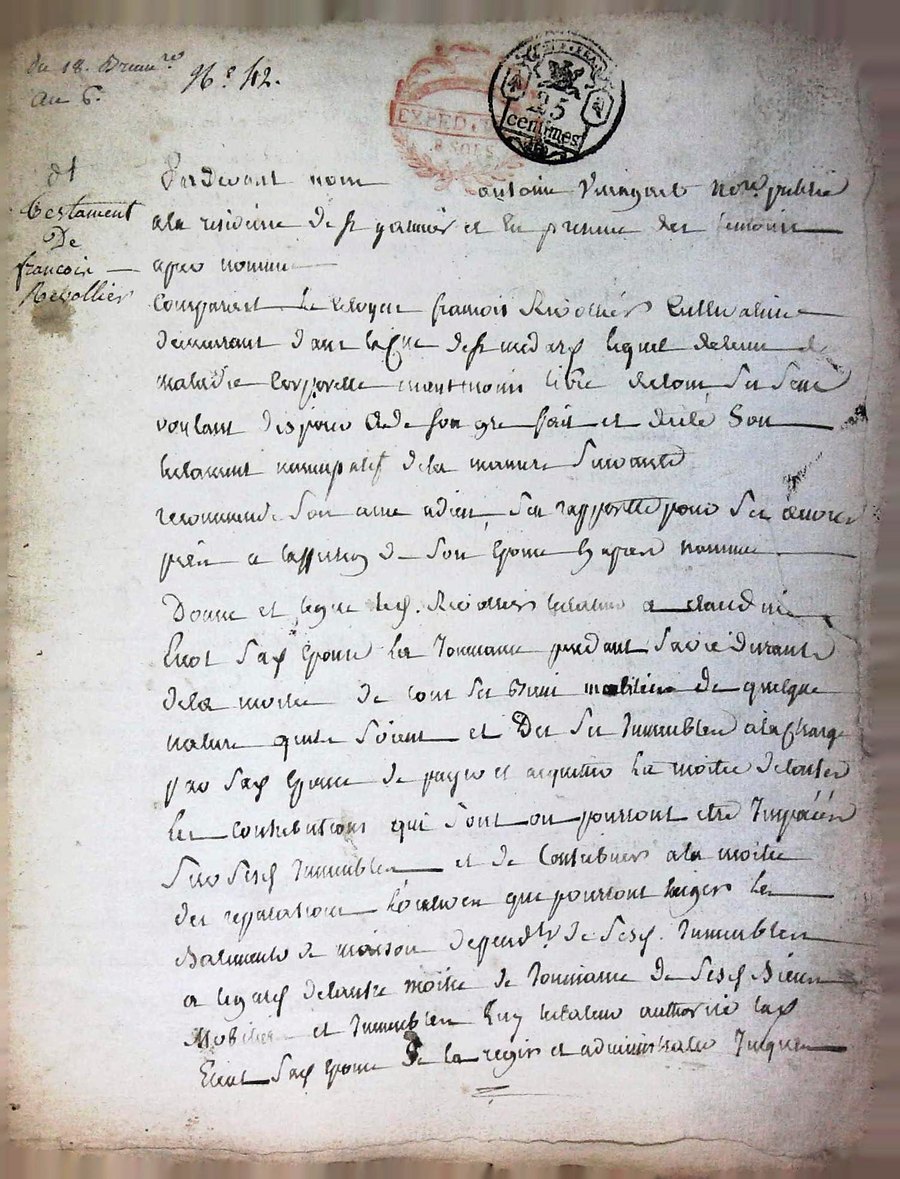 du 18. Brum.re
an 6.
N.e 42.
EXPED
8 SOLS
25
centimes
dt
testament
De
françois
Revollier
Pardevant nous antoine not.re public
ala residence de st galmier et En presence des temoins
apres nommes
Comparait Le Citoyen françois Revollier Cultivateur
demeurant dans la Cne de st medard lequel detenu de
maladie Corporelle neantmoins libre de tous Ses Sens
voulant disposer de Son gre fait et dicté Son
testament nuncupatif de la maniere Suivante
recommande Son ame adieu, Sen rapporte pour Ses œuvres
pies a de Son Epouse Cy apres nommée
Donne et legue led. Revollier testateur a claudine
Sad Epouse La Jouissance pendant Savie durante
dela moitie de tous Ses Biens mobiliers de quelque
nature quils Soient et De Ses Immeubles ala Charge
par Sad Epouse de payer et acquitter La moitie de toutes
Les Contributions qui Sont ou pourront etre Imposées
Sur Sesd Immeubles et de Contribuer ala moitie
des reparations que pourront Exiger Les
Batiments de maison depend.ts de Sesd. Immeubles
a legard delautre moitie de Jouissance de Sesd Biens
Mobiliers et Immeubles testateur authorise lad
Sad Epouse de la regir et administrer Jusques